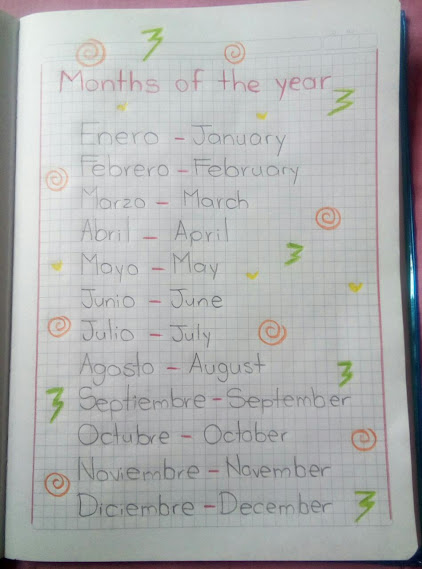 Months of the year
Enero - January
Febrero - February
Marzo - March
Abril - April
Mayo - May
Junio - June
Julio - July
Agosto - August
Septiembre - September
Octubre - October
Noviembre - November
Diciembre - December